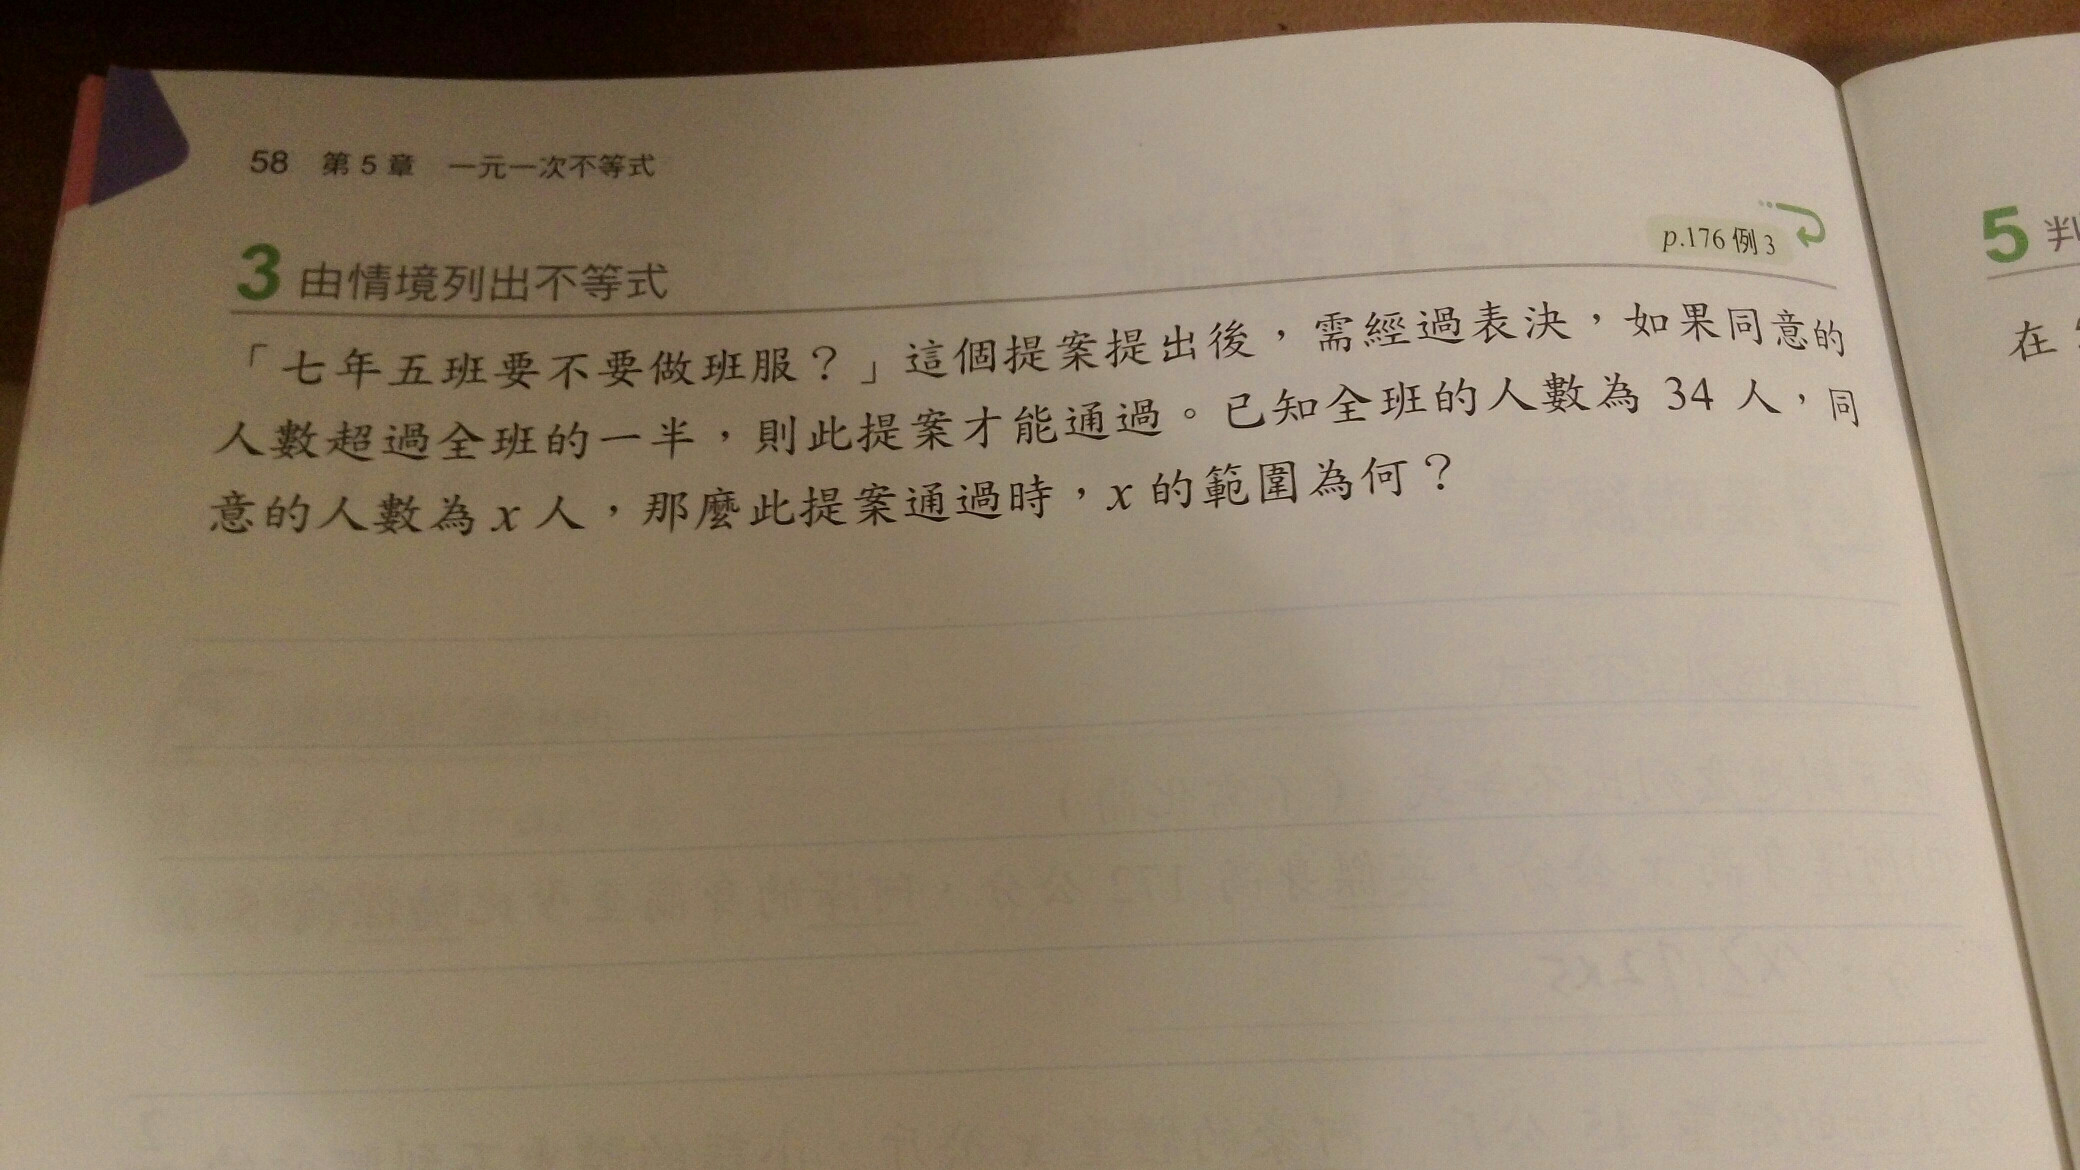 58 第5章 一元一次不等式
p.176 例3
3 由情境列出不等式
「七年五班要不要做班服？」這個提案提出後，需經過表決，如果同意的
人數超過全班的一半，則此提案才能通過。已知全班的人數為 34 人，同
意的人數為 x 人，那麼此提案通過時，x 的範圍為何？
5 判
在